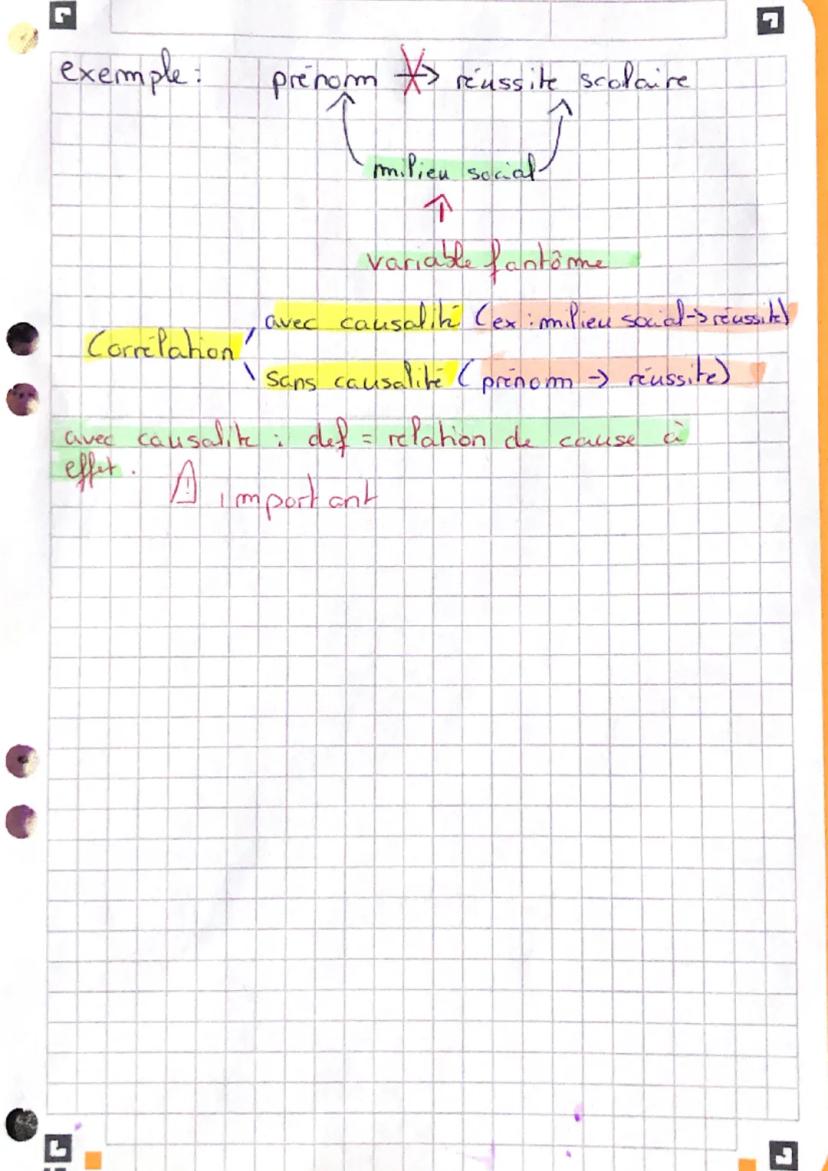 exemple : prénom → réussite scolaire
milieu social
↑
variable fantôme
avec causalité (ex : milieu social → réussite)
Corrélation
sans causalité (prénom → réussite)
avec causalité : def = relation de cause à
effet. ⚠ important